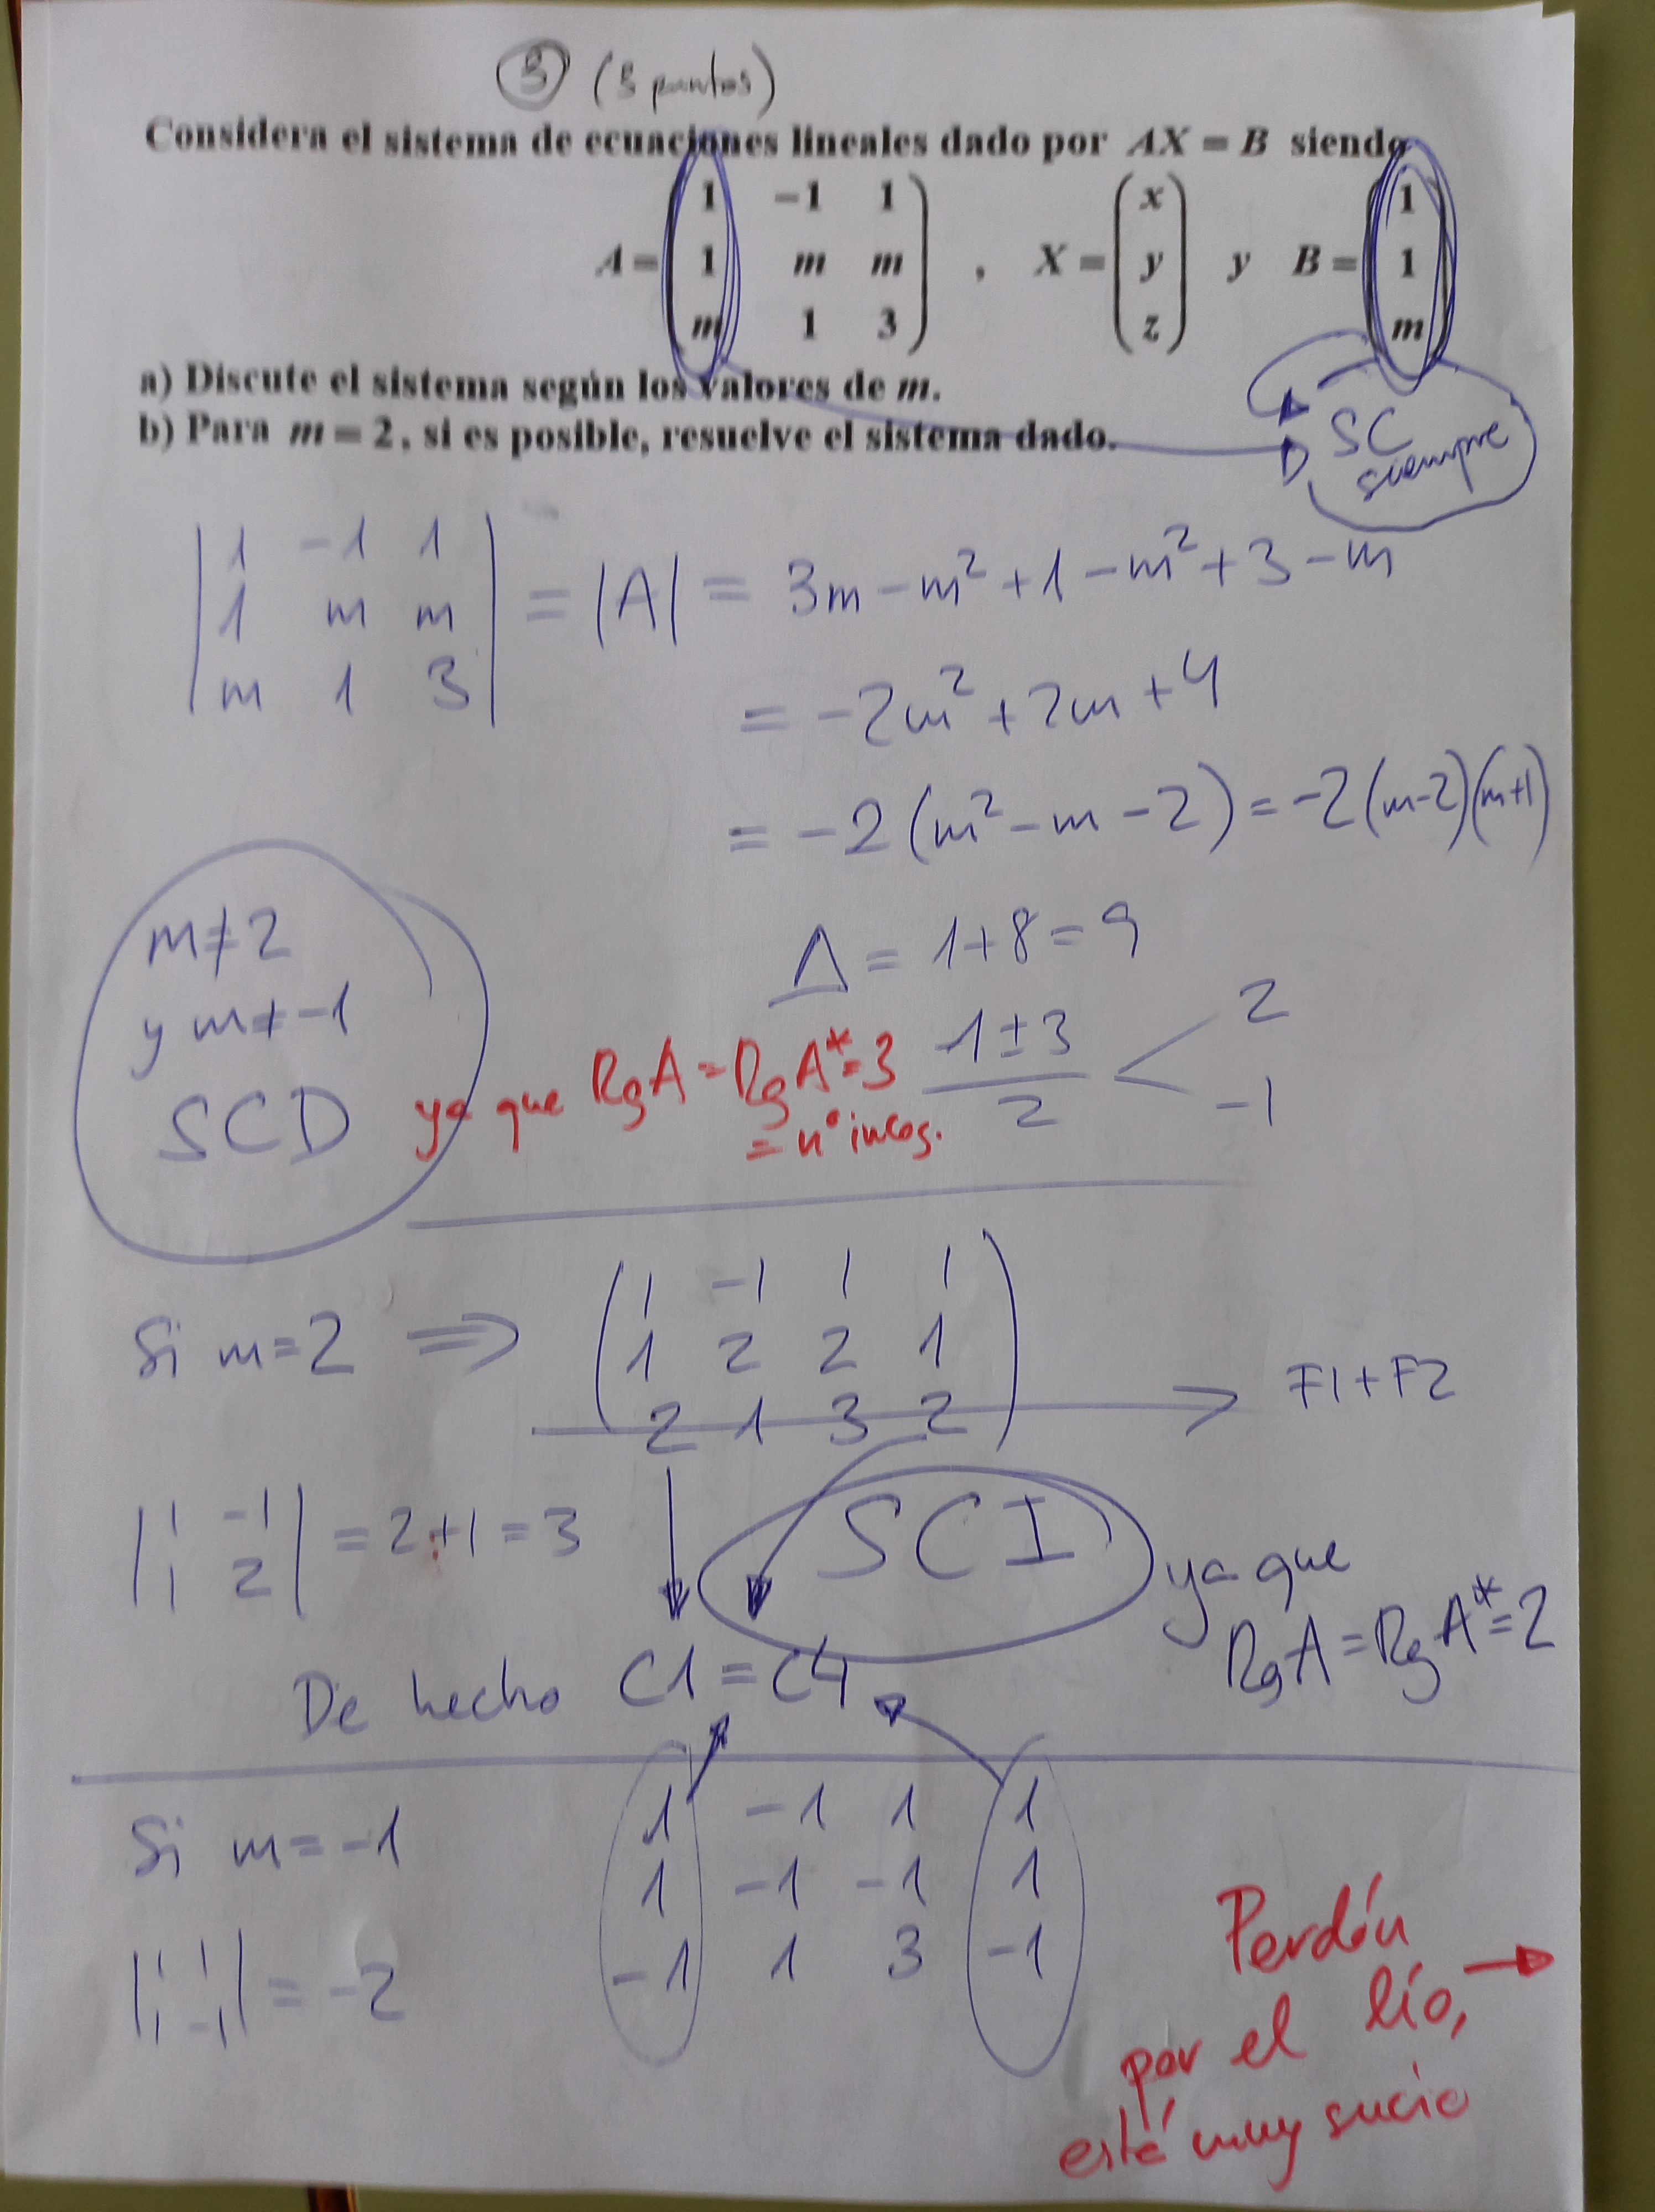 ③ (3 puntos)
Considera el sistema de ecuaciones lineales dado por AX = B siendo
A = ( 1 -1 1 ; 1 m m ; m 1 3 ) , X = ( x ; y ; z ) y B = ( 1 ; 1 ; m )
a) Discute el sistema según los valores de m.
b) Para m = 2, si es posible, resuelve el sistema dado.
SC
siempre
| 1 -1 1 ; 1 m m ; m 1 3 | = |A| = 3m - m² + 1 - m² + 3 - m
= -2m² + 2m + 4
= -2(m² - m - 2) = -2(m-2)(m+1)
Δ = 1+8 = 9
(1 ± 3)/2 < 2 ; -1
m ≠ 2
y m ≠ -1
SCD
ya que RgA = RgA* = 3
= nº incog.
Si m=2 ⇒ ( 1 -1 1 1 ; 1 2 2 1 ; 2 1 3 2 ) → F1+F2
| 1 -1 ; 1 2 | = 2+1 = 3
SCI
ya que
RgA = RgA* = 2
De hecho C1 = C4
Si m = -1
1 -1 1 1
1 -1 -1 1
-1 1 3 -1
| 1 1 ; 1 -1 | = -2
Perdón →
por el lío,
está muy sucio